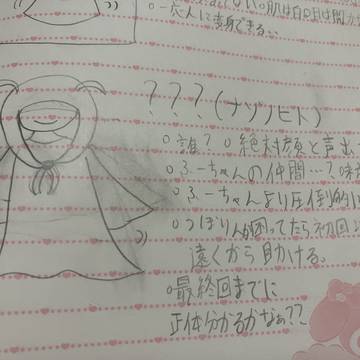 ない。肌は白。目は閉
○一応人に変身できる。
？？？(ナゾノヒト)
○誰？○絶対顔と声出
○ふーちゃんの仲間…？味
○ふーちゃんより圧倒的に
○つぼりんが困ってたら初回
遠くから助ける。
○最終回までに
正体分かるかなぁ？？